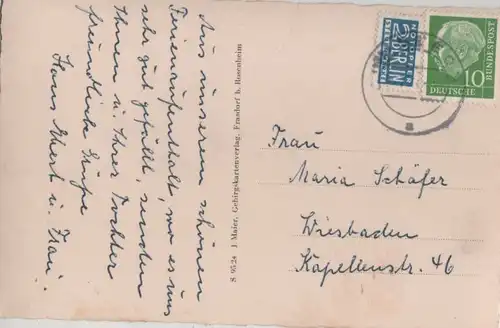 Aus unserem schönen
Ferienaufenthalt, wo es uns
sehr gut gefällt, senden
Ihnen u. Ihrer Tochter
freundliche Grüße
Hans u. Frau.
S 952a J. Maier, Gebirgskartenverlag, Frasdorf b. Rosenheim
NOTOPFER
2 BERLIN
STEUERMARKE
DEUTSCHE
BUNDESPOST
10
a
Frau
Maria Schäfer
Wiesbaden
Kapellenstr. 46